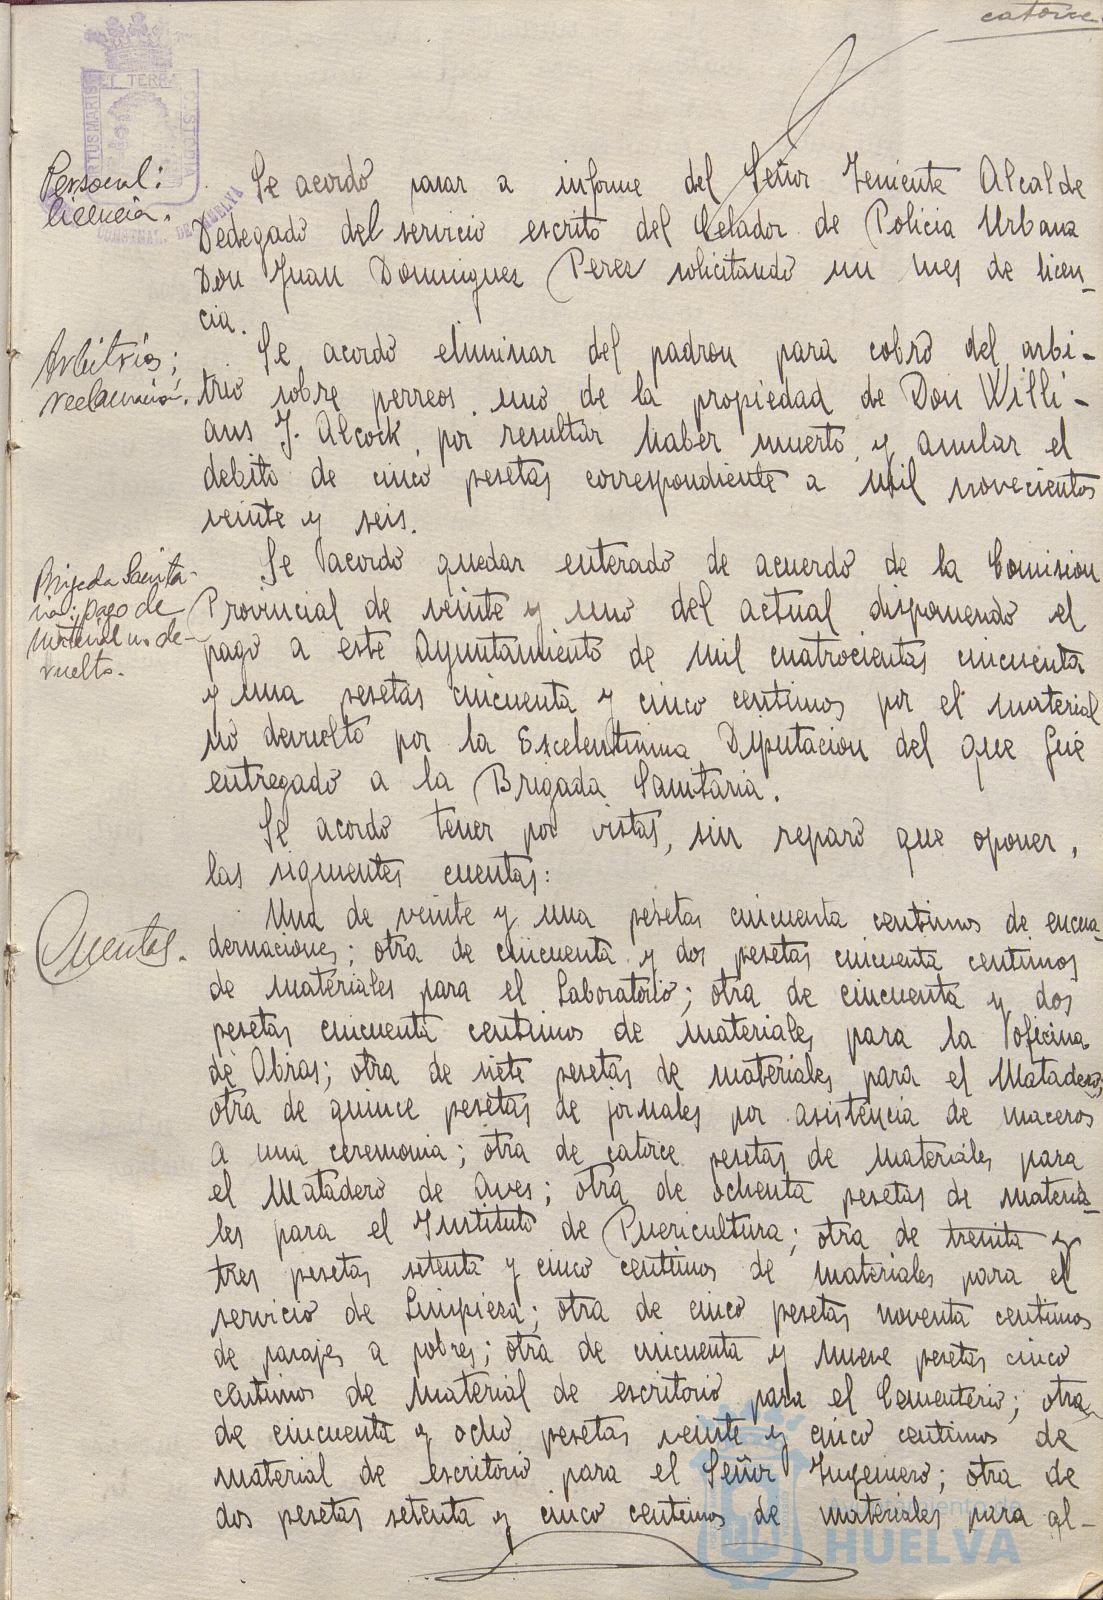 catorce
ET TERRÆ CUSTODIA
PORTUS MARIS
CONSTNAL. DE HUELVA
Personal:
licencia.
Se acordó pasar a informe del Señor Teniente Alcalde
Dedegado del servicio escrito del Celador de Policia Urbana
Don Juan Dominguez Perez solicitando un mes de licen-
cia.
Arbitrios;
reclamación.
Se acordó eliminar del padron para cobro del arbi-
trio sobre perreos, uno de la propiedad de Don Willi-
ans J. Alcock, por resultar haber muerto, y anular el
debito de cinco pesetas correspondiente a mil novecientos
veinte y seis.
Brigada Sanita-
ria: pago de
material no de-
vuelto.
Se acordó quedar enterado de acuerdo de la Comision
Provincial de veinte y uno del actual disponiendo el
pago a este Ayuntamiento de mil cuatrocientas cincuenta
y una pesetas cincuenta y cinco centimos por el material
no devuelto por la Excelentisima Diputacion del que fué
entregado a la Brigada Sanitaria.
Se acordó tener por vistas, sin reparo que oponer,
las siguientes cuentas:
Cuentas.
Una de veinte y una pesetas cincuenta centimos de encua-
dernaciones; otra de cincuenta y dos pesetas cincuenta centimos
de materiales para el Laboratorio; otra de cincuenta y dos
pesetas cincuenta centimos de materiales para la oficina
de Obras; otra de siete pesetas de materiales para el Matadero;
otra de quince pesetas de jornales por asistencia de maceros
a una ceremonia; otra de catorce pesetas de materiales para
el Matadero de Aves; otra de ochenta pesetas de materia-
les para el Instituto de Puericultura; otra de treinta y
tres pesetas setenta y cinco centimos de materiales para el
servicio de Limpieza; otra de cinco pesetas noventa centimos
de pasajes a pobres; otra de cincuenta y nueve pesetas cinco
centimos de material de escritorio para el Cementerio; otra
de cincuenta y ocho pesetas veinte y cinco centimos de
material de escritorio para el Señor Ingeniero; otra de
dos pesetas setenta y cinco centimos de materiales para al-
Ayuntamiento de
HUELVA